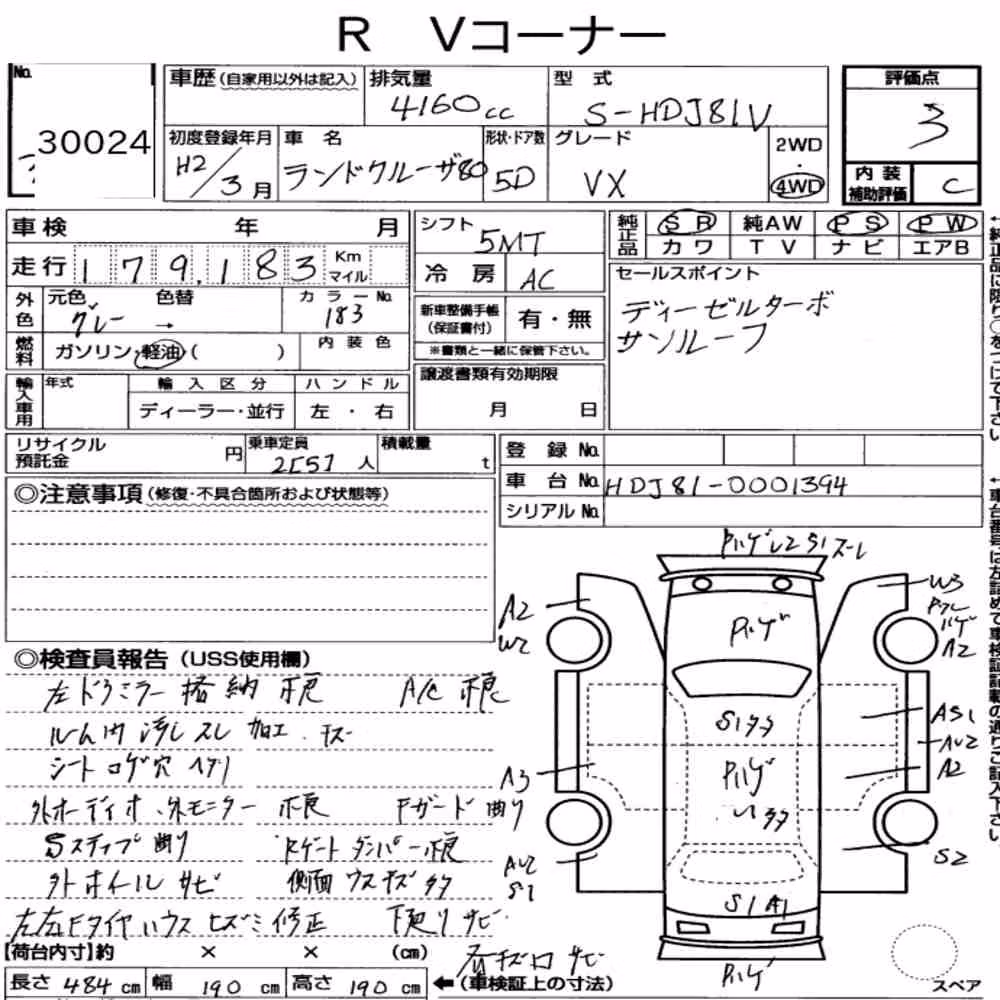 R Vコーナー
No. 30024
車歴 (自家用以外は記入)
排気量 4160cc
型式 S-HDJ81V
評価点 3
初度登録年月 H2/3月
車名 ランドクルーザ80
形状・ドア数 5D
グレード VX
2WD
4WD
内装補助評価 C
車検 年 月
走行 179,183 Km マイル
シフト 5MT
冷房 AC
純正品 SR 純AW PS PW
カワ TV ナビ エアB
外色 元色 グレー 色替 → カラーNo. 183
燃料 ガソリン・軽油・( )
内装色
新車整備手帳(保証書付) 有・無
※書類と一緒に保管下さい。
セールスポイント
ディーゼルターボ
サンルーフ
輸入車用 年式 輸入区分 ハンドル
ディーラー・並行 左・右
譲渡書類有効期限
月 日
リサイクル預託金 円
乗車定員 2[5]人
積載量 t
登録No.
車台No. HDJ81-0001394
シリアルNo.
◎注意事項 (修復・不具合箇所および状態等)
◎検査員報告 (USS使用欄)
左ドアミラー 格納 不良 A/C 不良
シート コゲ穴 ヘタリ
外オーディオ、外モニター 不良 Fガード 曲り
Sステップ 曲り Rゲート ダンパー 不良
外ホイール サビ 側面 ウスキズ
下廻り サビ
A2
W2
A3
AU2
S1
W3
A2
AS1
AU2
A2
S2
Pハゲ
Pハゲ
S1 A1
Pハゲ
【荷台内寸】約 × × (cm)
長さ 484 cm 幅 190 cm 高さ 190 cm ←(車検証上の寸法)
スペア
←純正品に限り○をつけて下さい。
←車台番号は左詰めで車検証記載の通りご記入下さい。